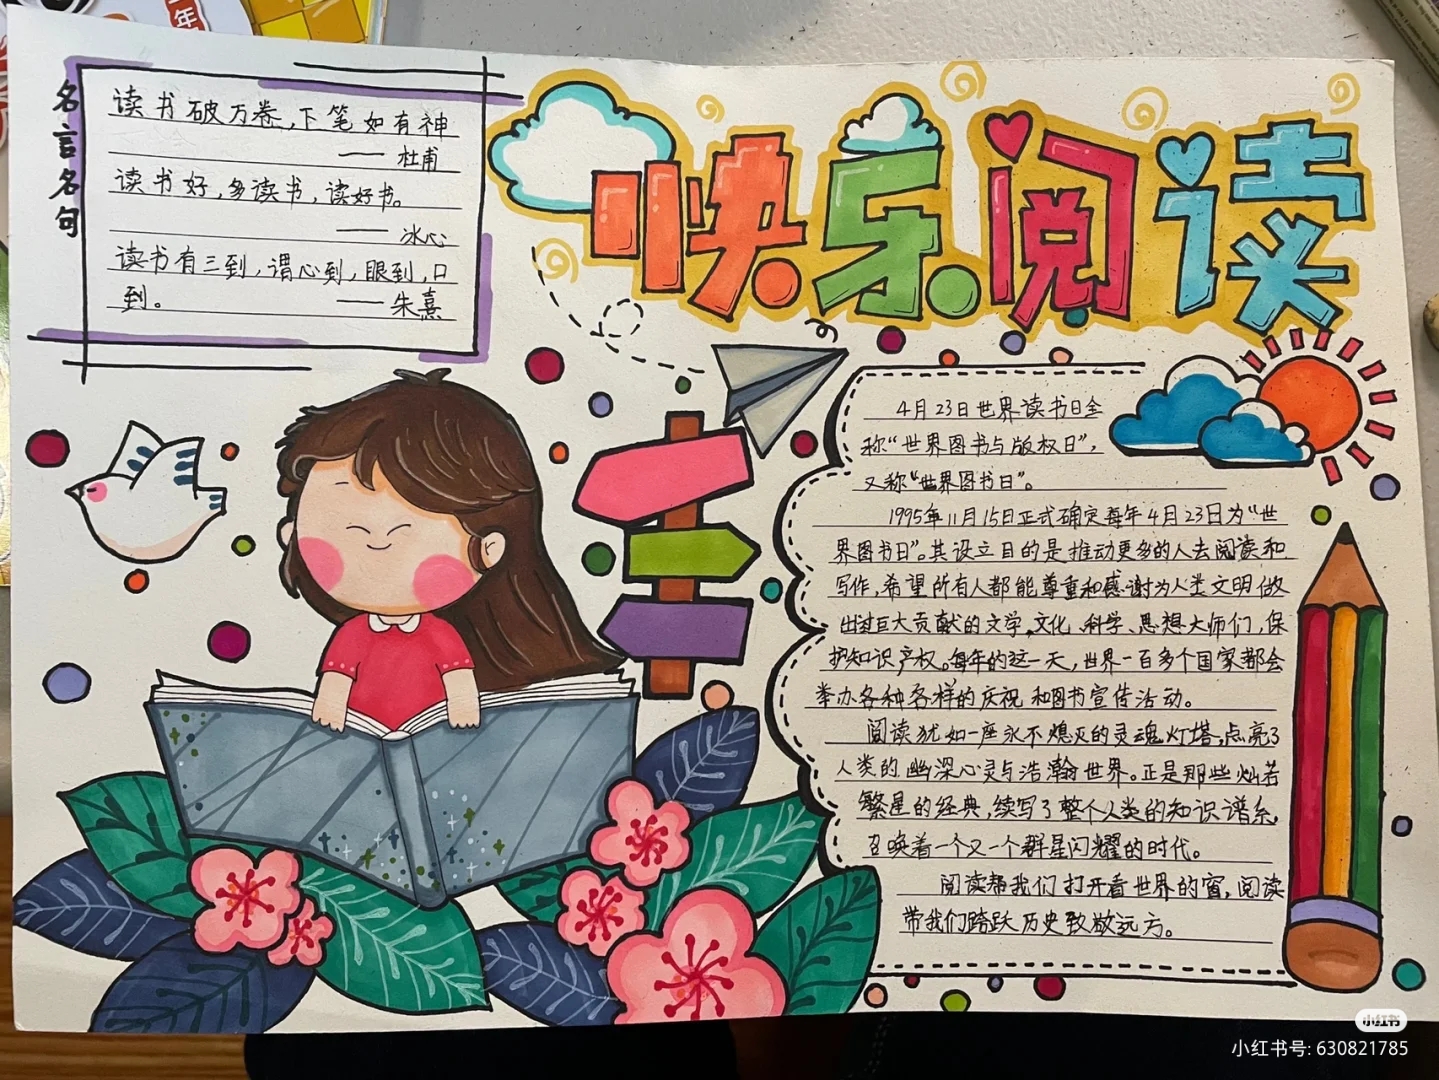 名言名句
读书破万卷，下笔如有神
——杜甫
读书好，多读书，读好书。
——冰心
读书有三到，谓心到，眼到，口
到。——朱熹
快乐阅读
4月23日世界读书日全
称“世界图书与版权日”，
又称“世界图书日”。
1995年11月15日正式确定每年4月23日为“世
界图书日”。其设立目的是推动更多的人去阅读和
写作，希望所有人都能尊重和感谢为人类文明做
出过巨大贡献的文学，文化、科学、思想大师们，保
护知识产权。每年的这一天，世界一百多个国家都会
举办各种各样的庆祝和图书宣传活动。
阅读犹如一座永不熄灭的灵魂灯塔，点亮了
人类的幽深心灵与浩瀚世界。正是那些灿若
繁星的经典，续写了整个人类的知识谱系，
召唤着一个又一个群星闪耀的时代。
阅读帮我们打开看世界的窗，阅读
带我们跨跃历史致敬远方。
年
小红书
小红书号: 630821785